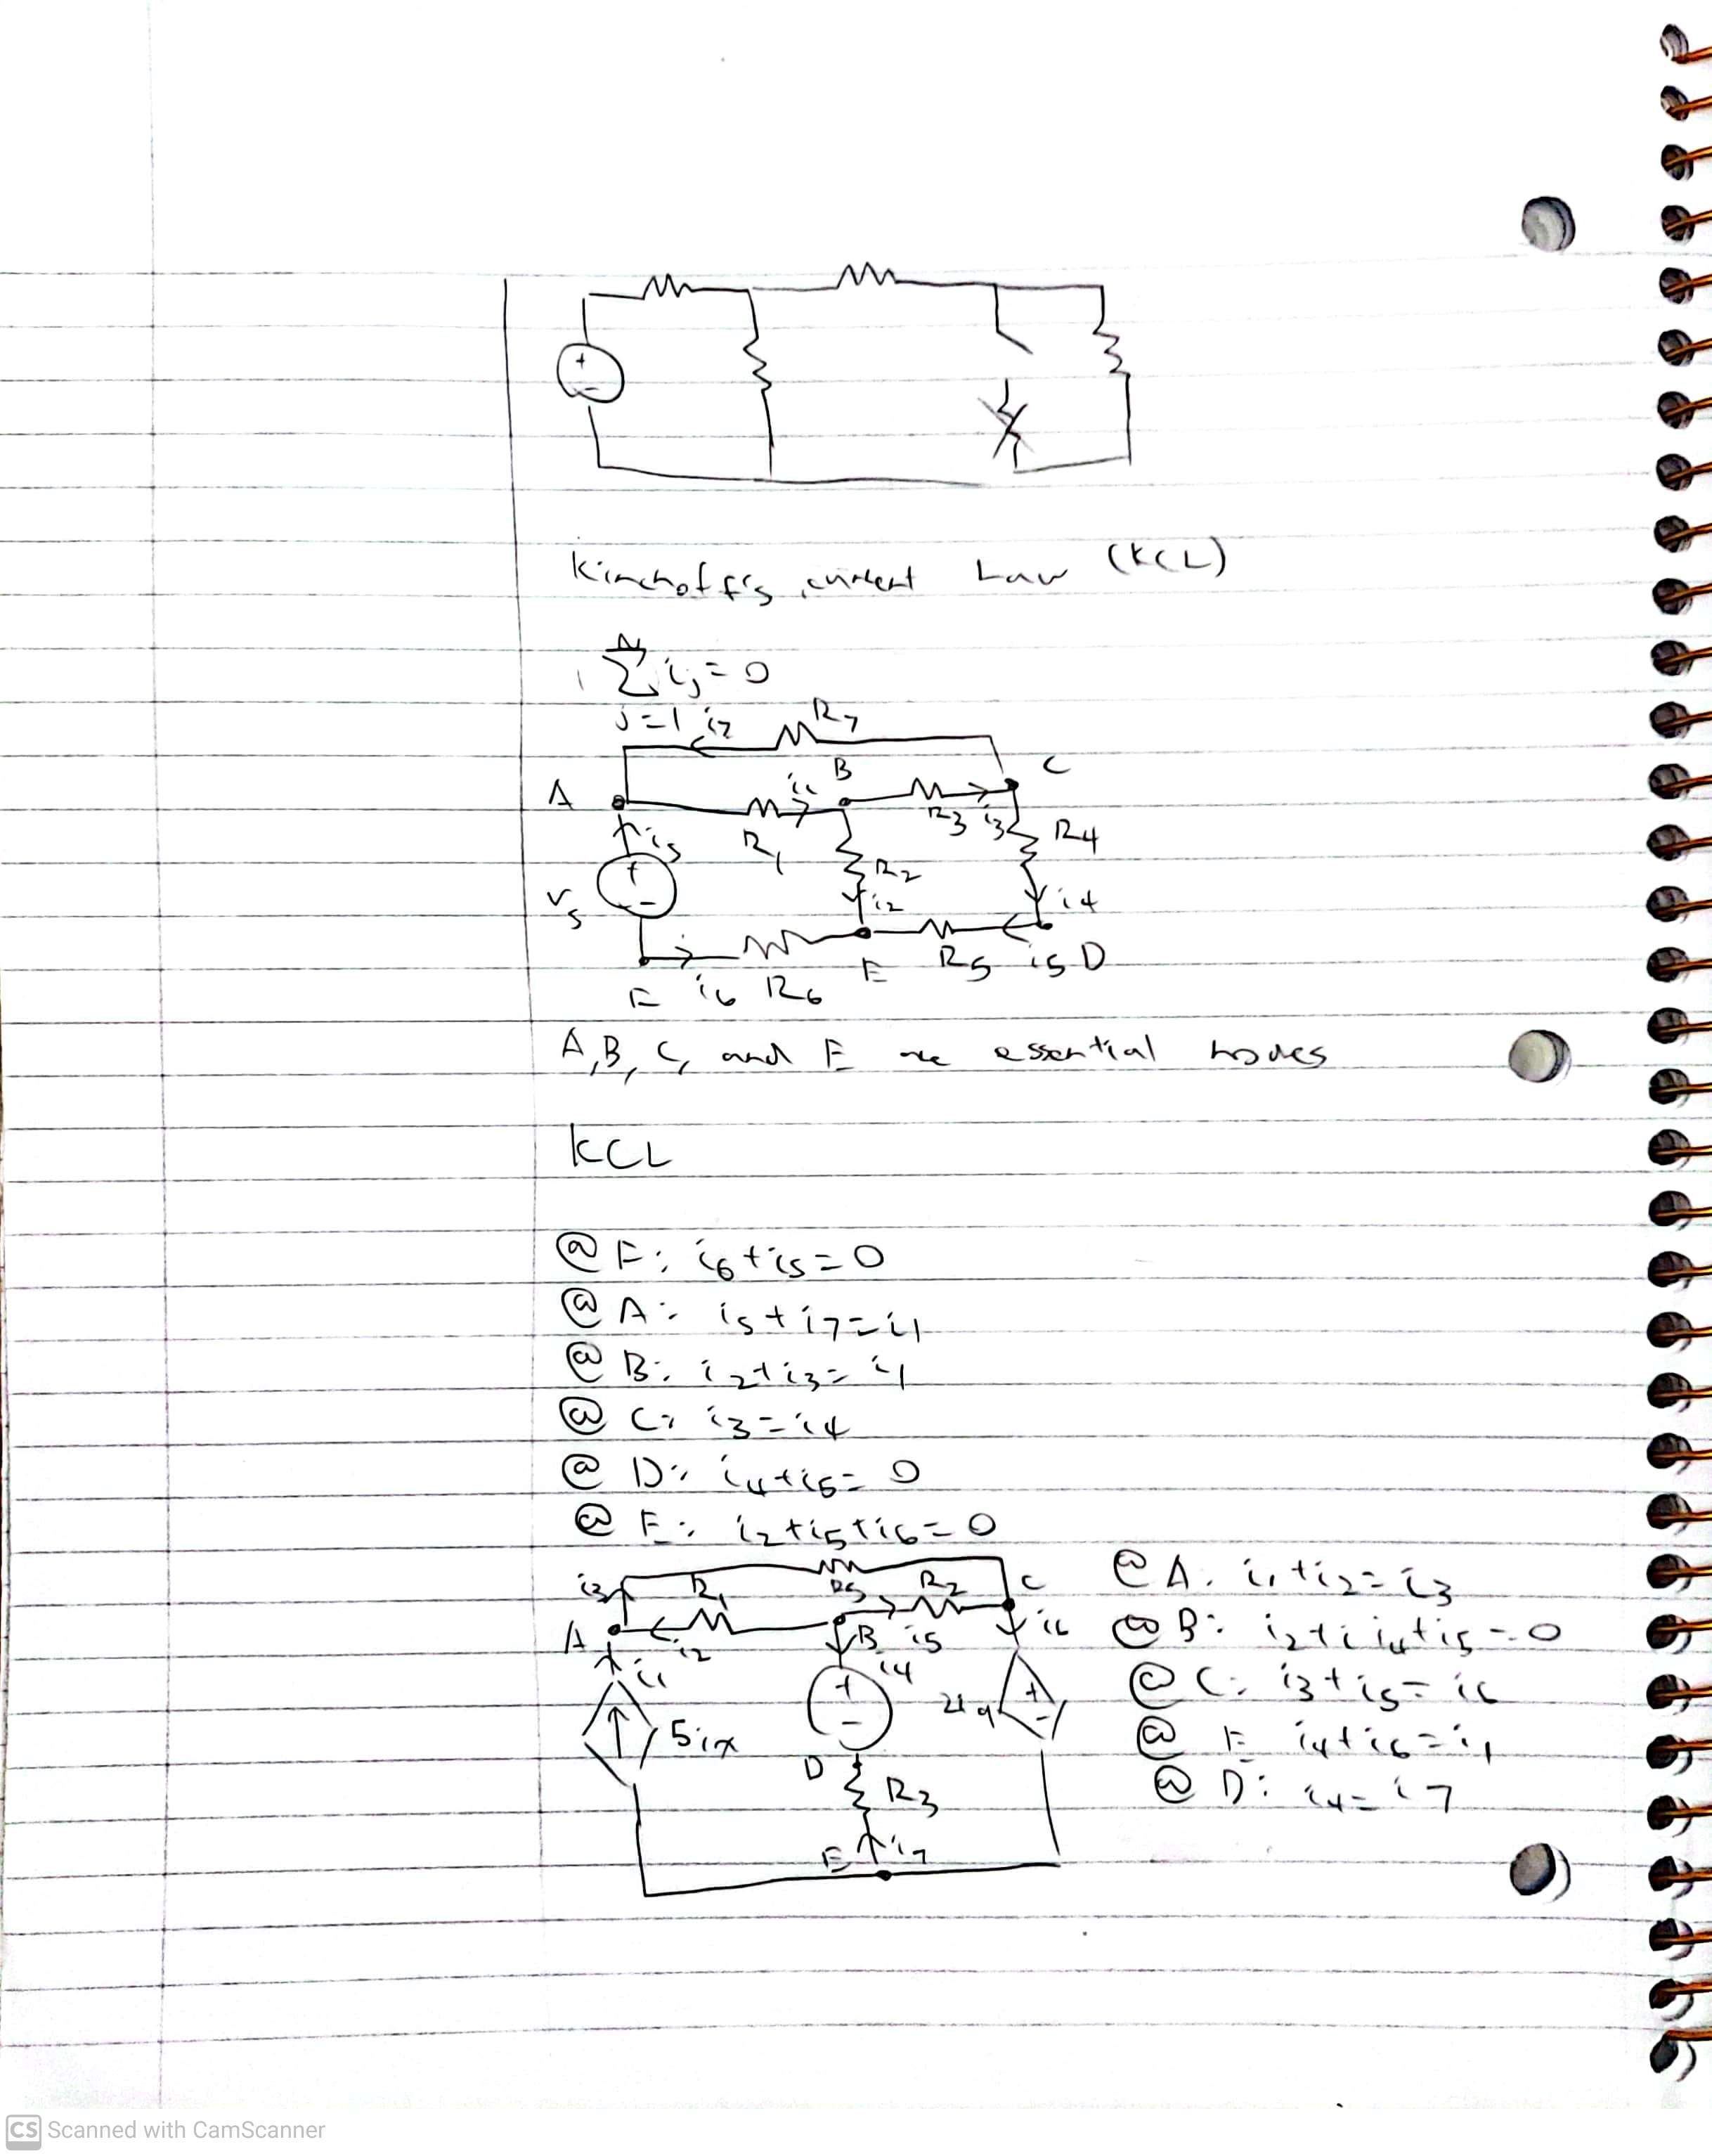 Kirchoff's current Law (KCL)
N
∑ i_j = 0
j=1
i7 R7
A B C
i1 R3 i3 R4
is R1 R2
vs i2 i4
R5 i5 D
F i6 R6 E
A, B, C, and E are essential nodes
KCL
@ F: i6 + is = 0
@ A: is + i7 = i1
@ B: i2 + i3 = i1
@ C: i3 = i4
@ D: i4 + i5 = 0
@ E: i2 + i5 + i6 = 0
i3 R1 R5 R2 C
A i2 B i5 i6
i1 i4
5ix
D R3
E i7
@ A: i1 + i2 = i3
@ B: i2 + i i4 + i5 = 0
@ C: i3 + i5 = i6
@ E i4 + i6 = i1
@ D: i4 = i7
CS Scanned with CamScanner